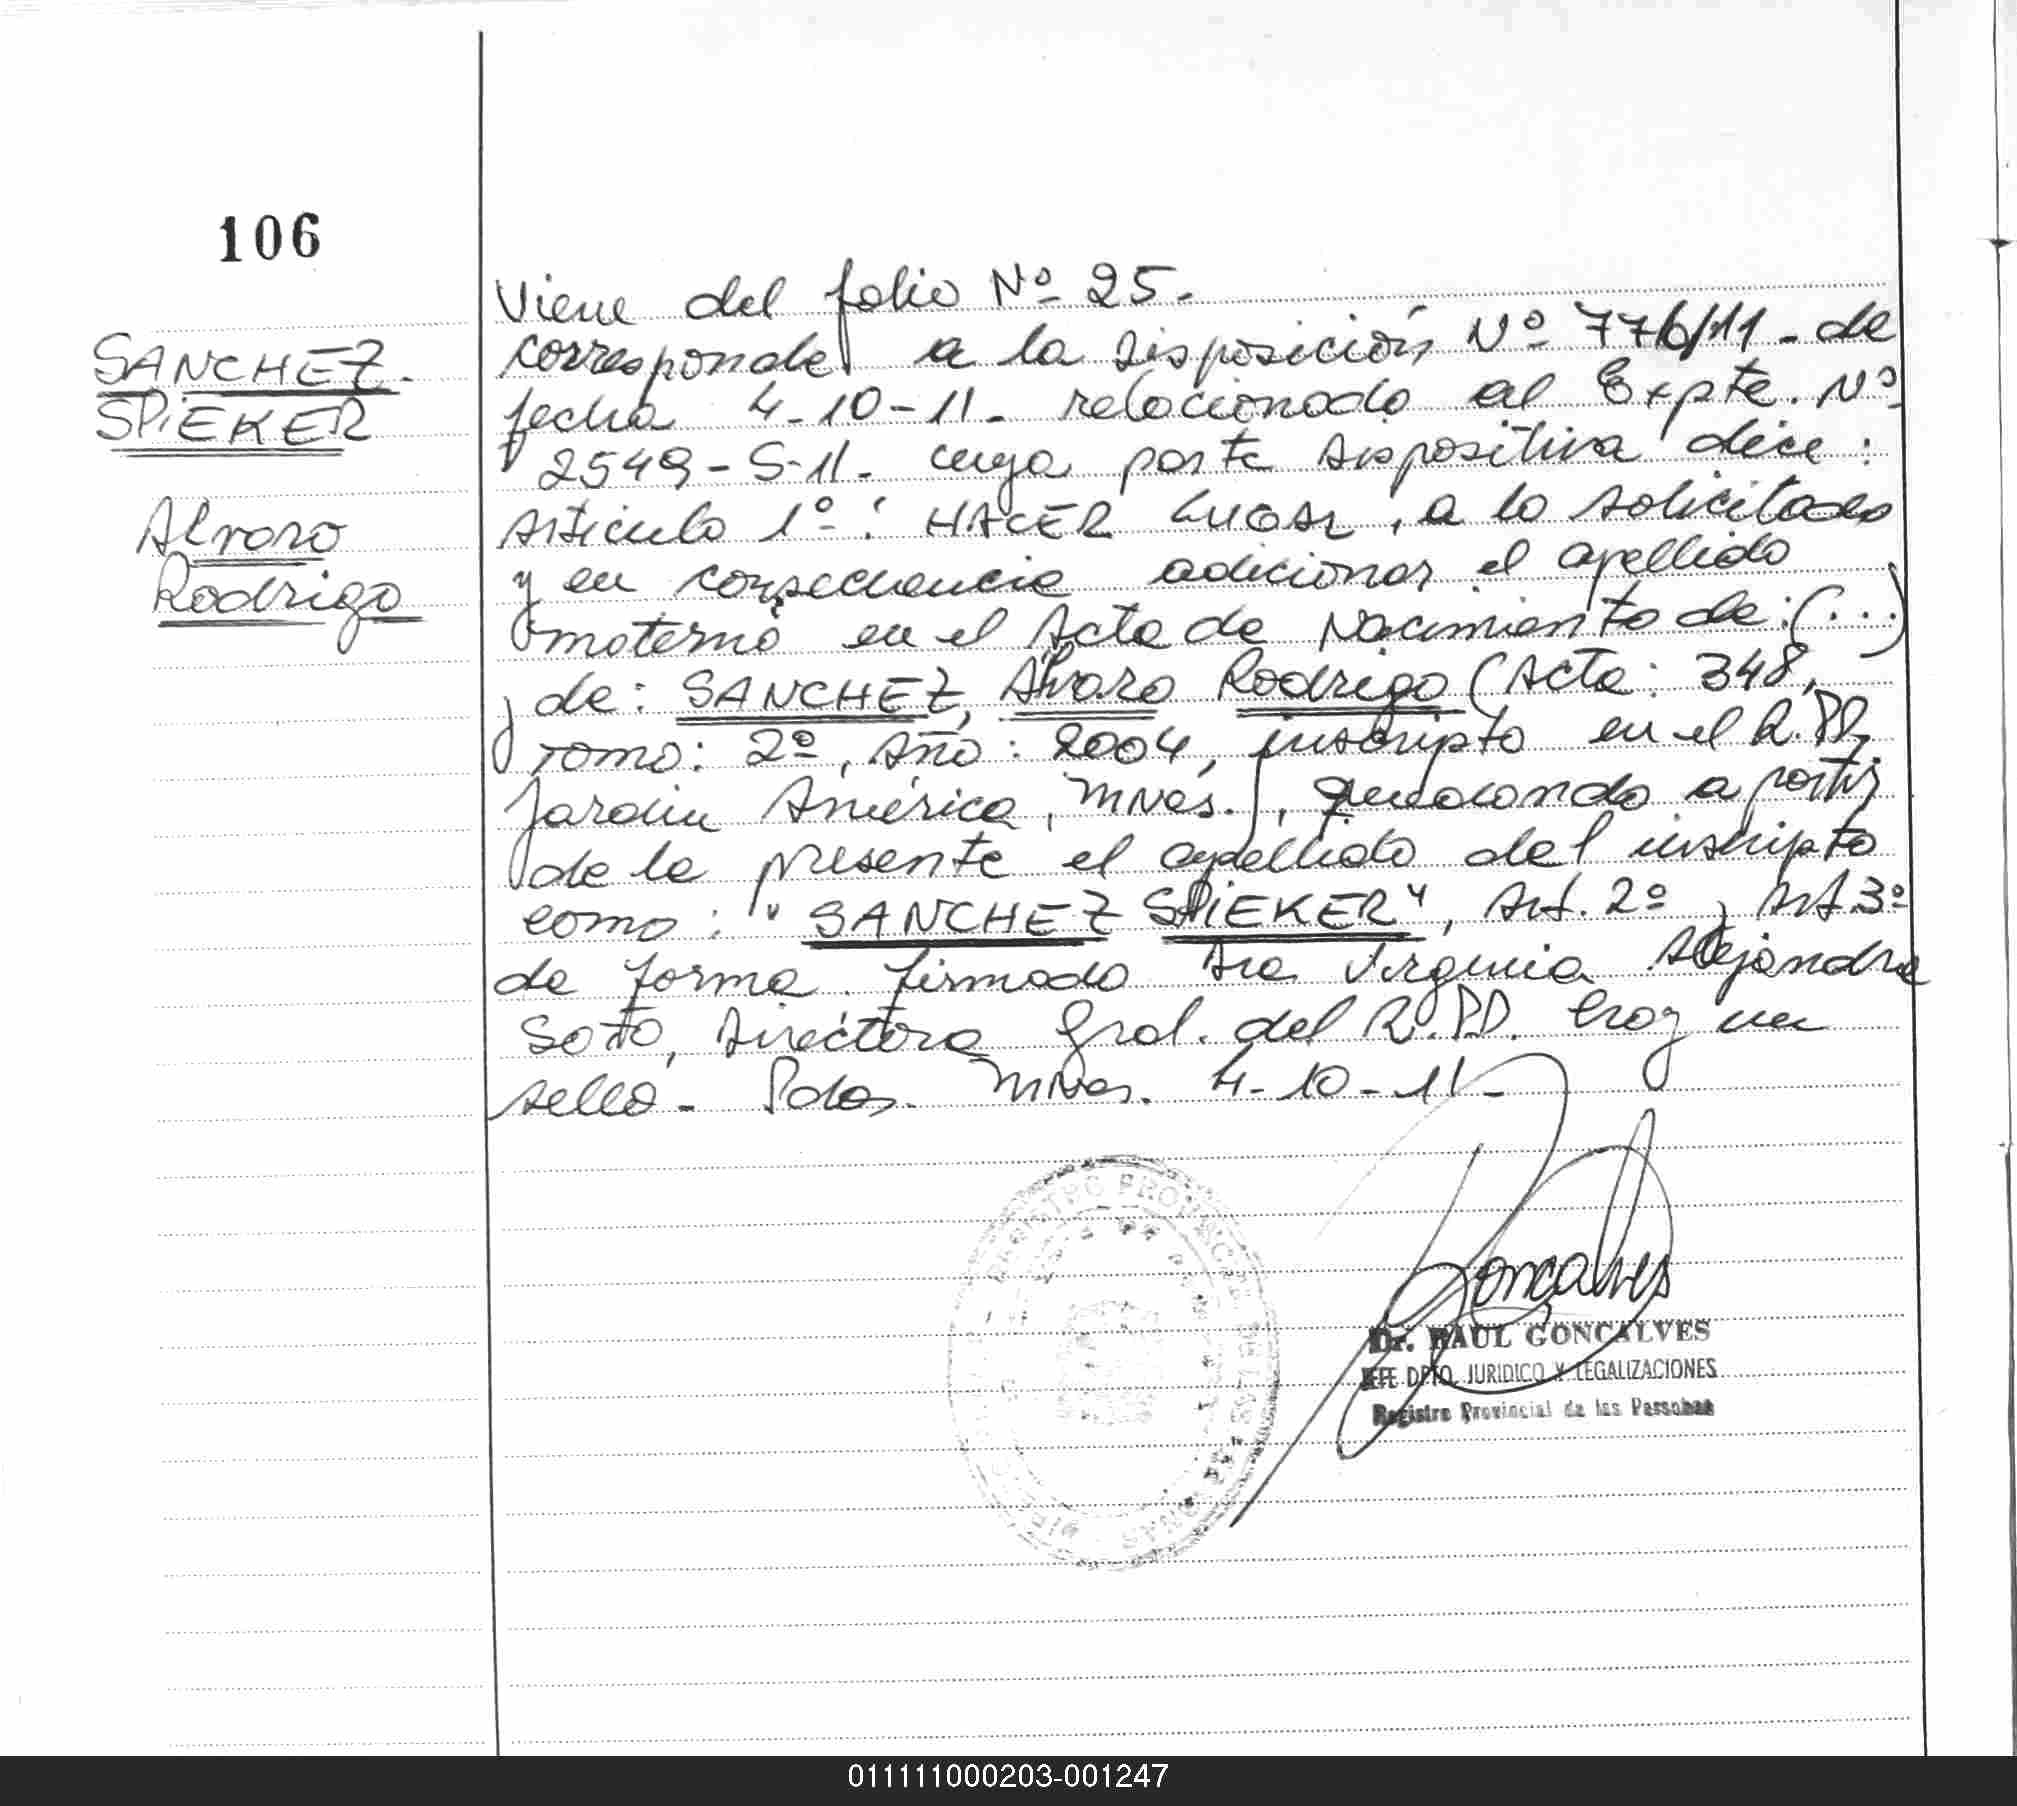 106
SANCHEZ.
SPiEKER
Alvaro
Rodrigo
Viene del folio Nº 25.-
corresponde a la Disposición Nº 776/11 - de
fecha 4-10-11- relacionado al Expte. Nº
2549-S-11- cuya parte Dispositiva dice:
Artículo 1º: HACER LUGAR, a lo solicitado
y en consecuencia adicionar el apellido
materno en el Acta de Nacimiento de: (...)
y de: SANCHEZ, Alvaro Rodrigo (Acta: 348,
Tomo: 2º, Año: 2004, inscripto en el R.PP.
Jardín América, Mnes.), quedando a partir
de la presente el apellido del inscripto
como: "SANCHEZ SPiEKER", Art. 2º y Art. 3º
de forma. firmado Dra Virginia Alejandra
Soto, Directora Gral. del R.PP. hay un
sello - Pdas. Mnes. 4-10-11-
REGISTRO PROVINCIAL DE LAS PERSONAS
Goncalves
Dr. RAUL GONCALVES
JEFE DPTO. JURIDICO Y LEGALIZACIONES
Registro Provincial de las Personas
011111000203-001247